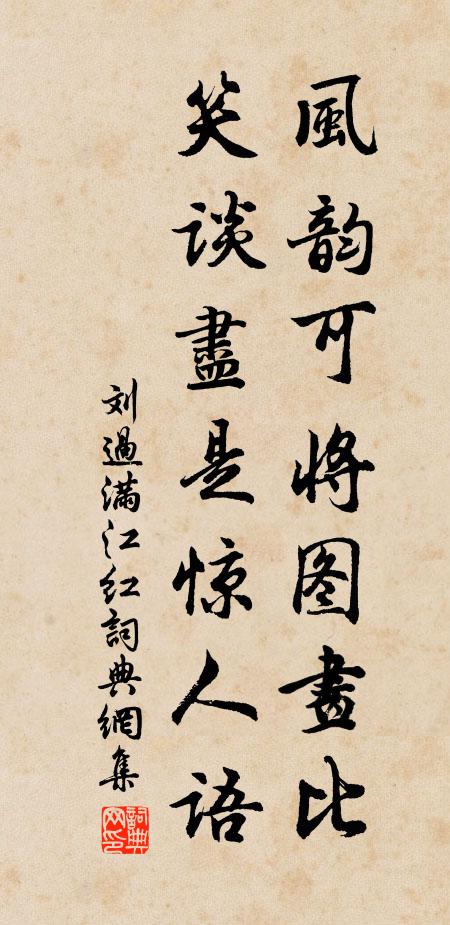 風韵可将图畫比
笑談盡是惊人语
刘過满江红詞典網集
詞典网印